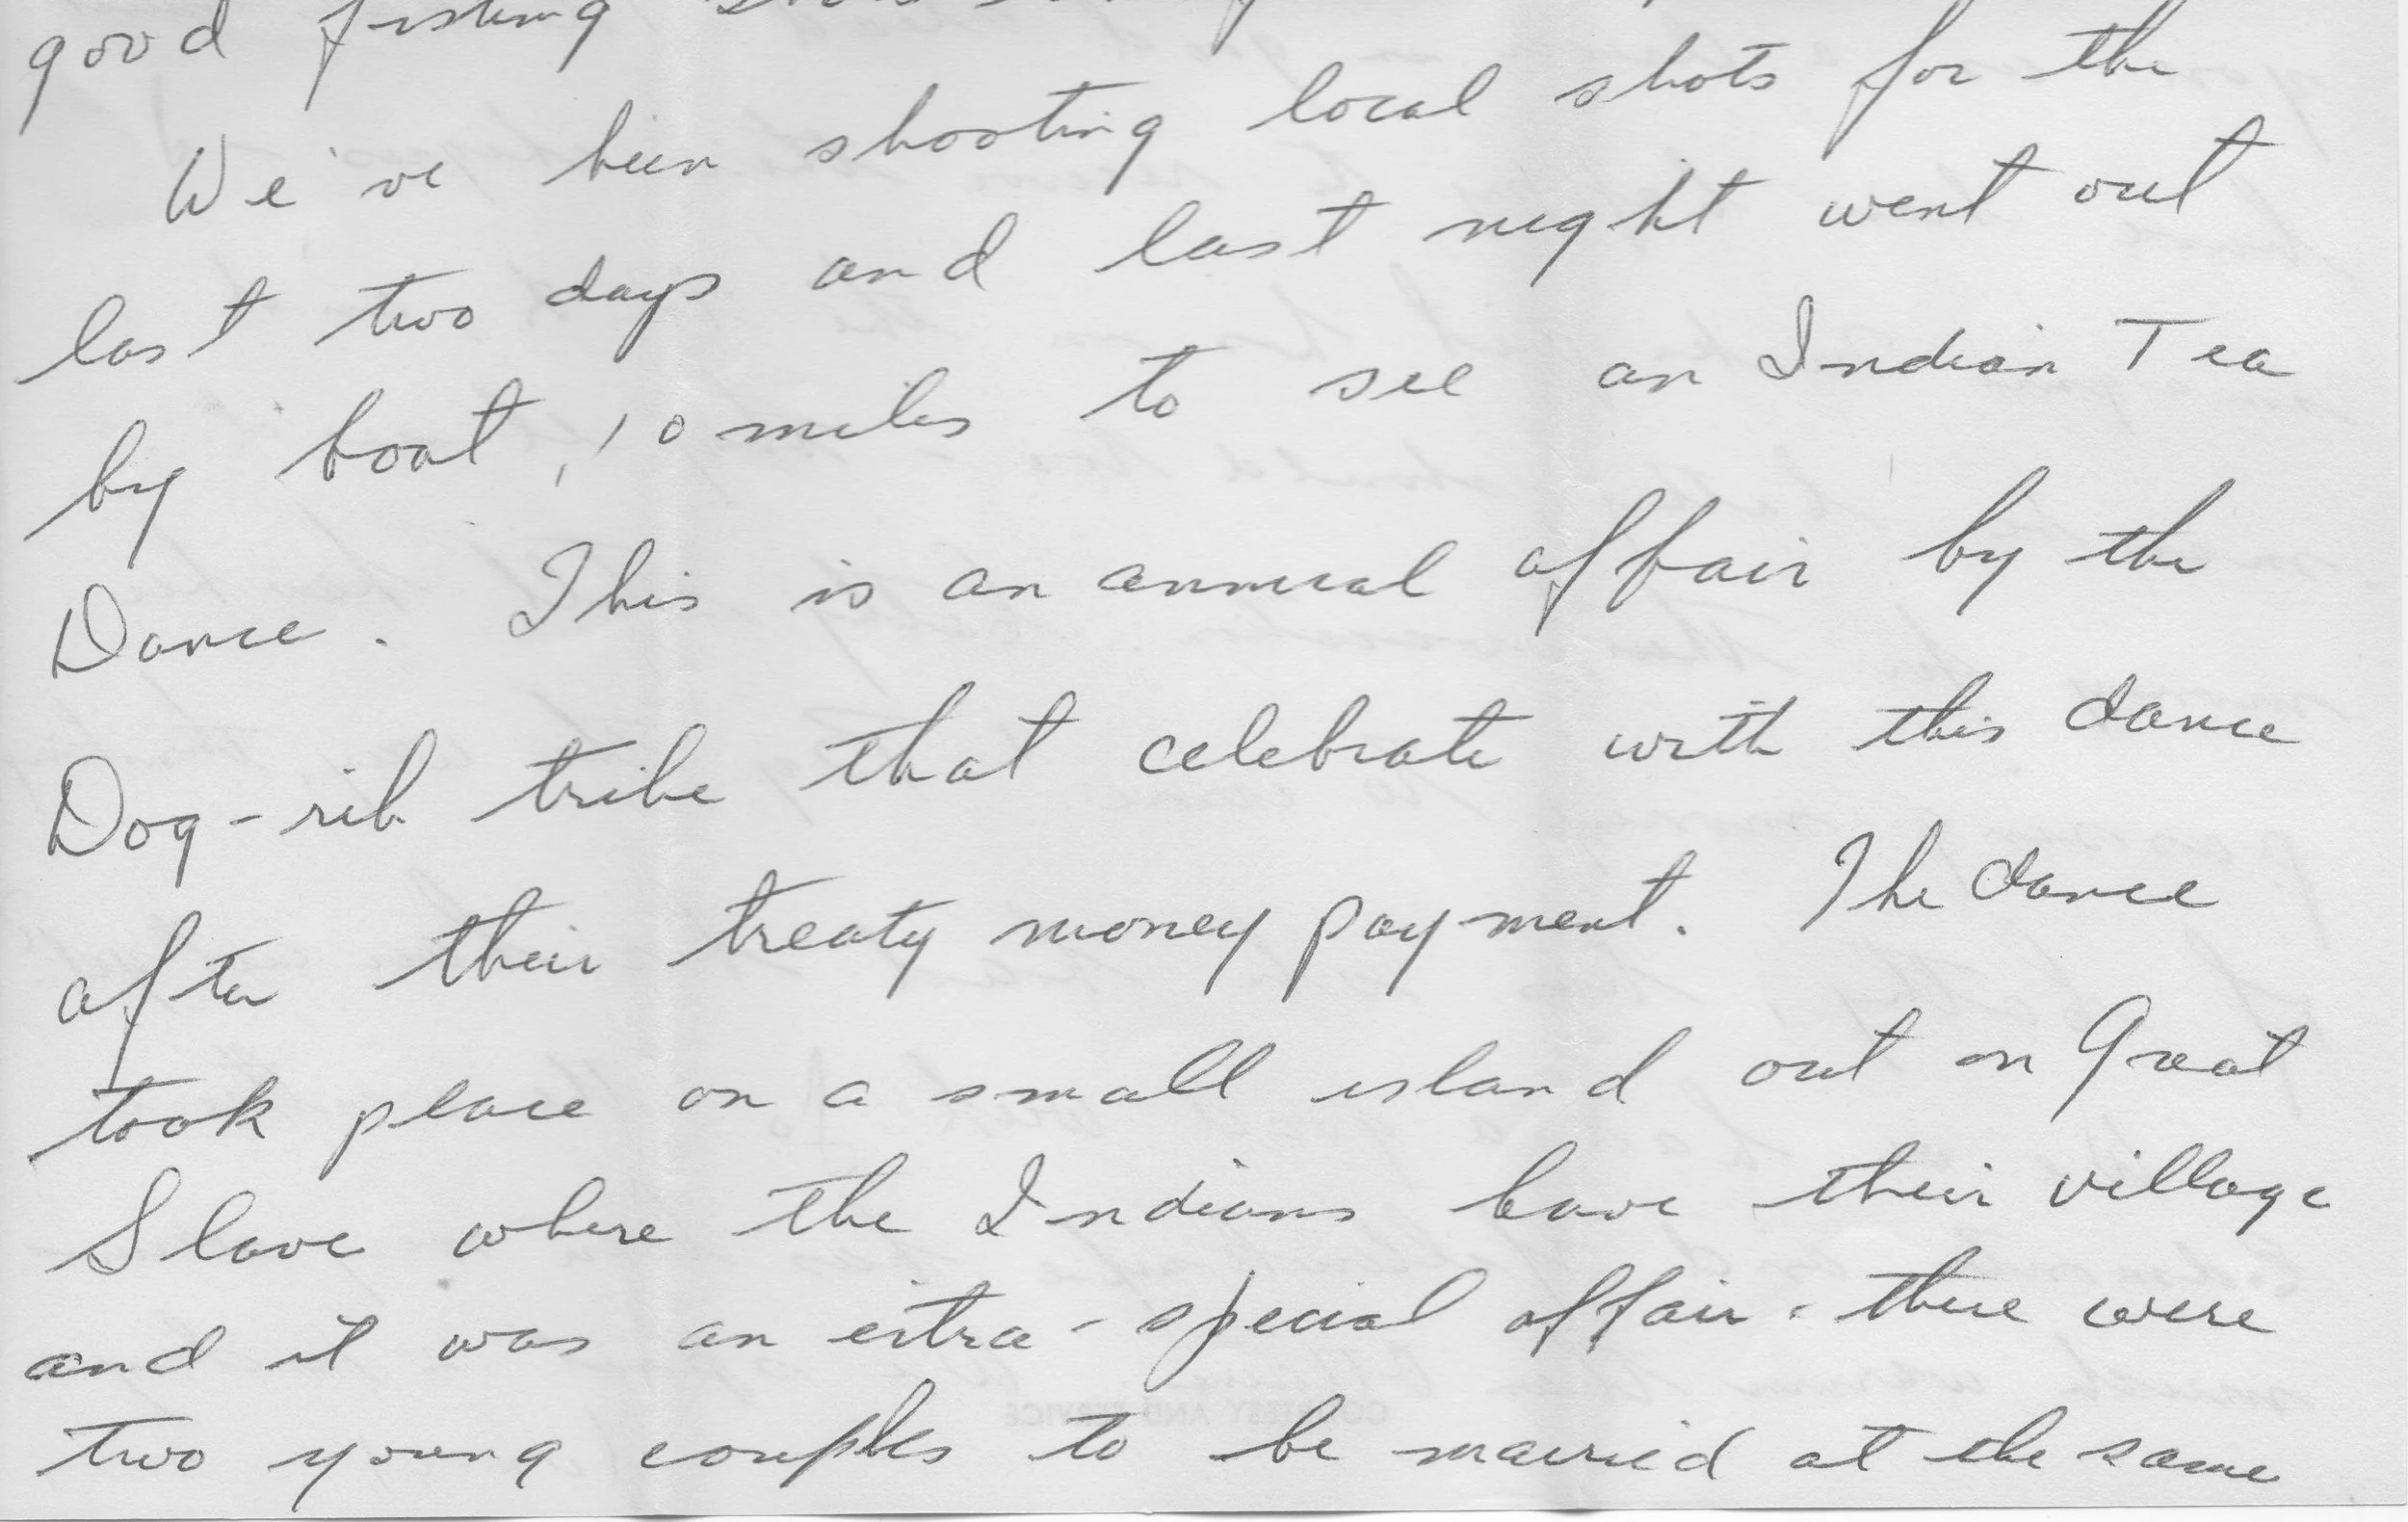 good fishing
We've been shooting local shots for the
last two days and last night went out
by boat, 10 miles to see an Indian Tea
Dance. This is an annual affair by the
Dog-rib tribe that celebrate with this dance
after their treaty money payment. The dance
took place on a small island out on Great
Slave where the Indians have their village
and it was an extra-special affair. there were
two young couples to be married at the same
COURTESY AND SERVICE